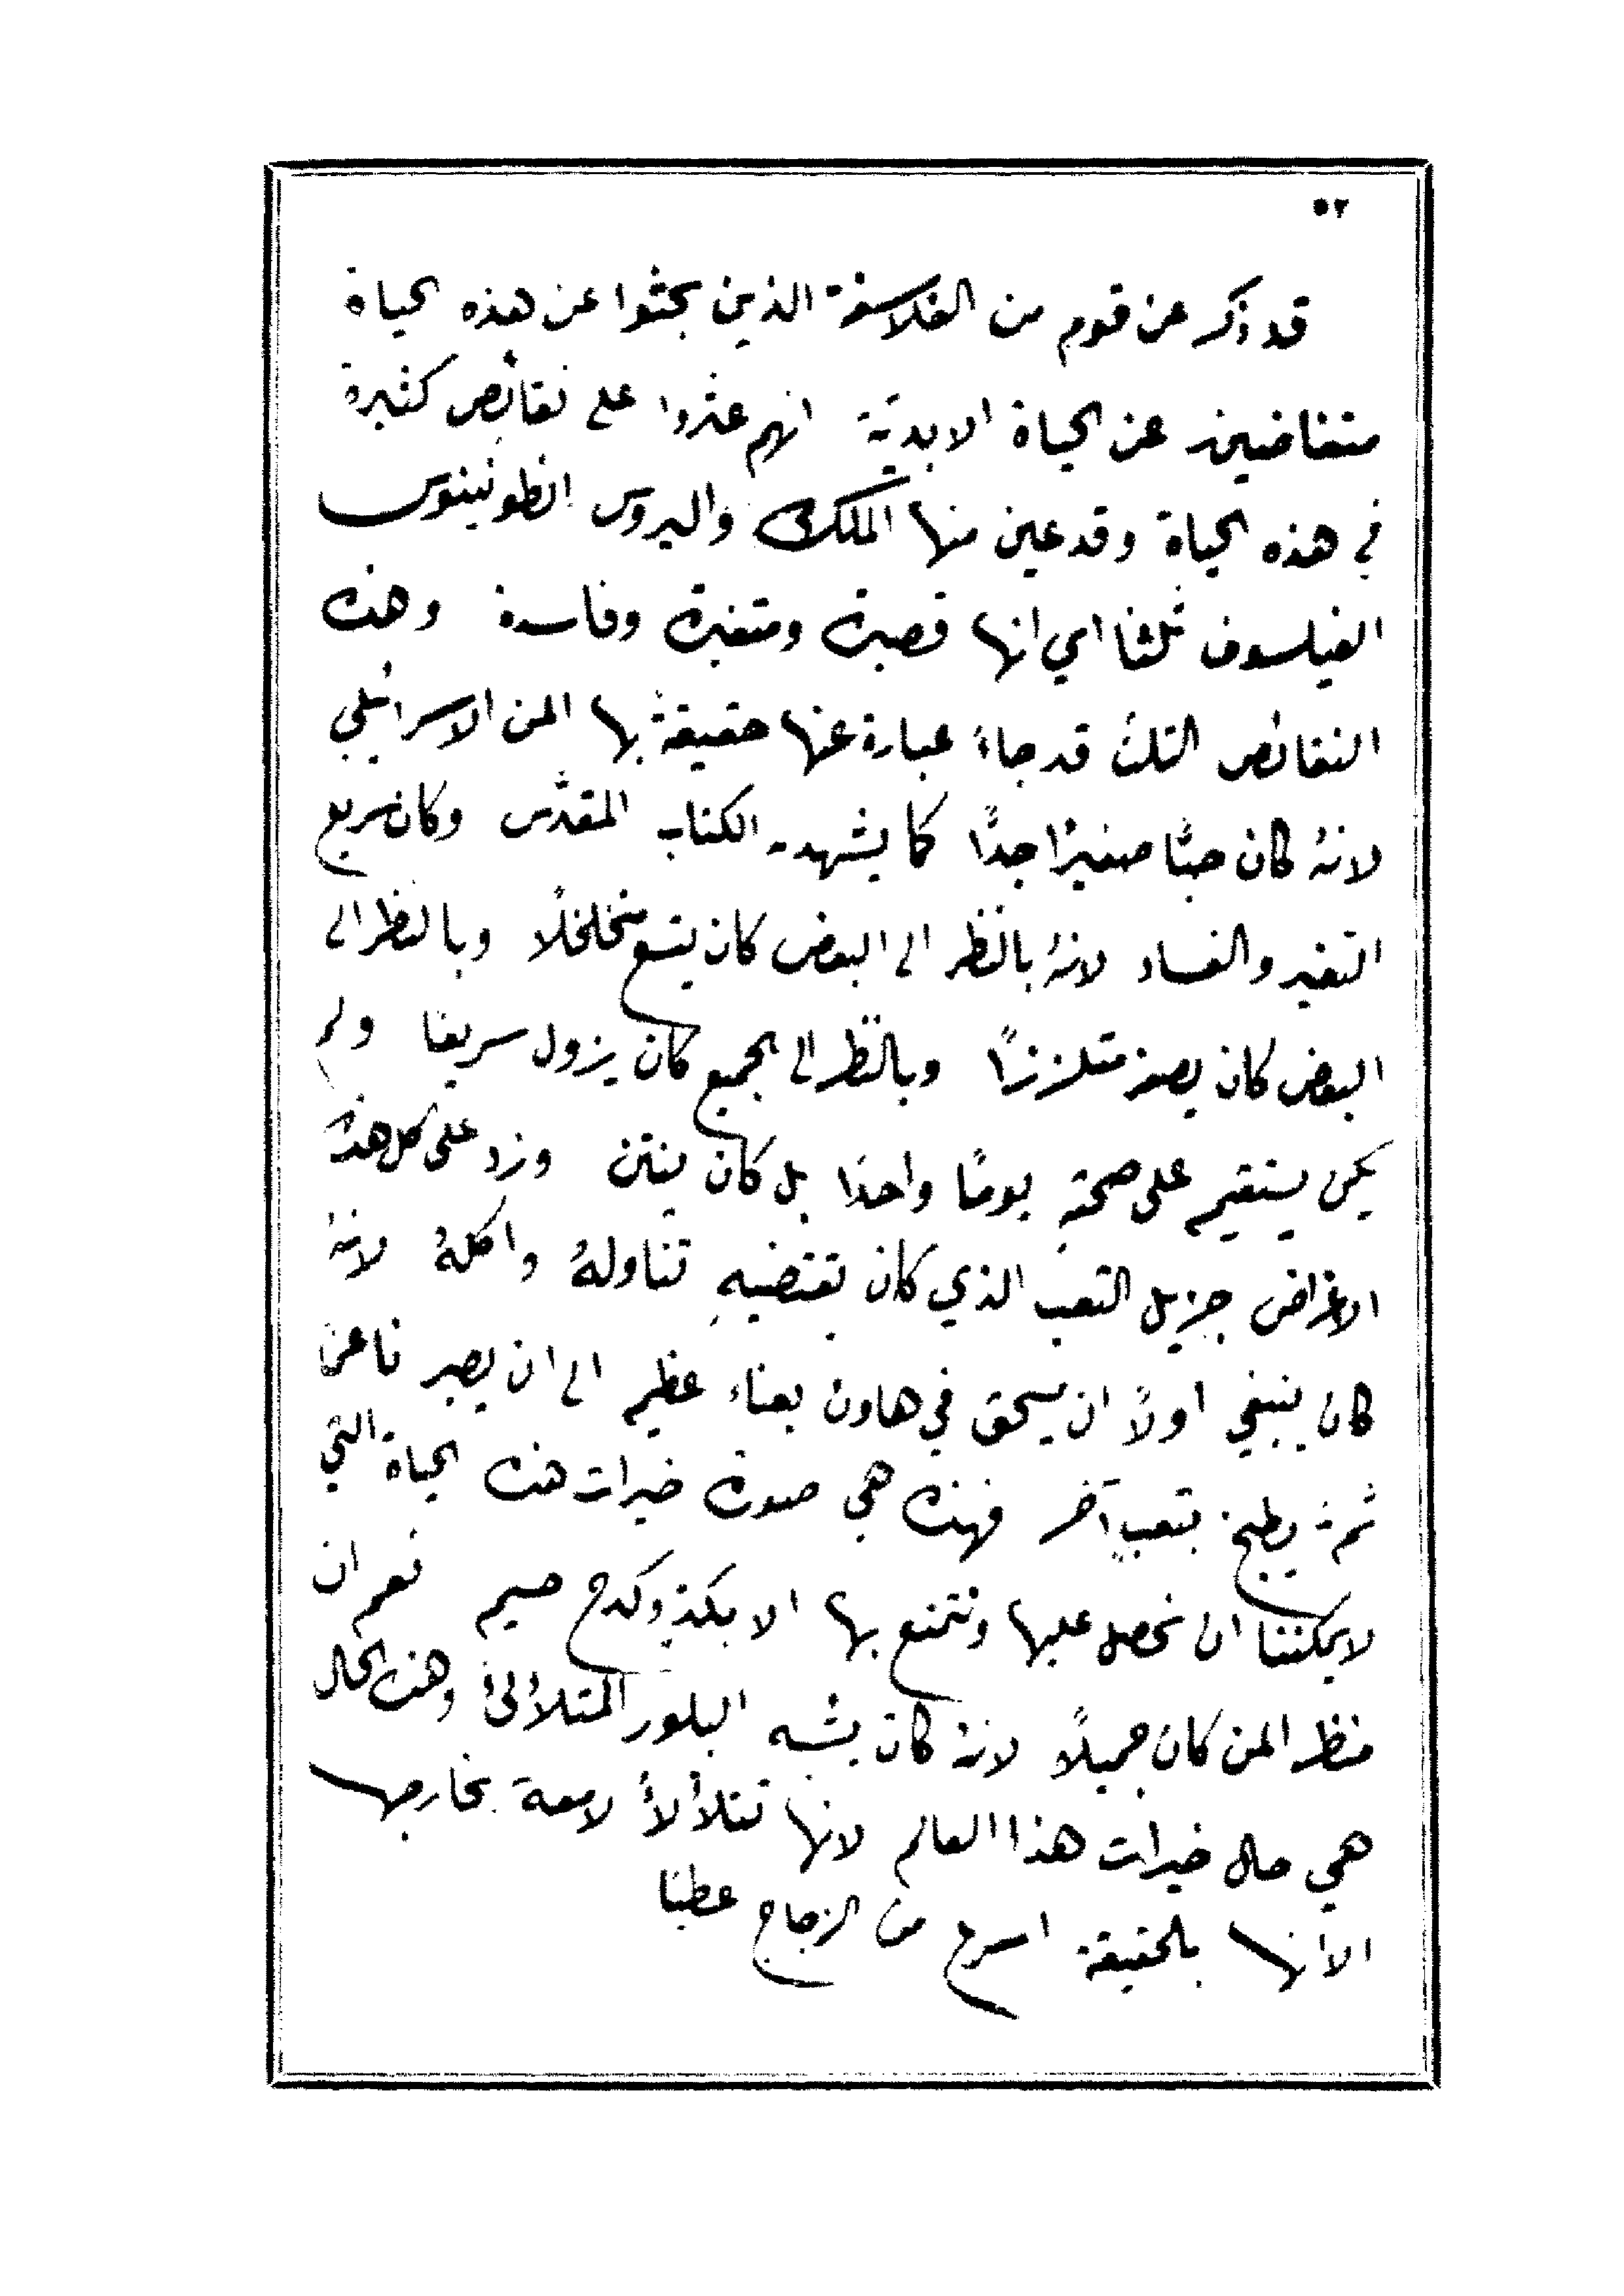 ٥٢
قد ذكر عن قوم من الفلاسفة الذين بحثوا عن هذه الحياة
متغاضين عن الحياة الابديّة انهم عثروا على نقائص كثيرة
في هذه الحياة وقد عين منها الملك والفيروس انطونينوس
الفيلسوف ثلثا اي انها قصيرة ومتغيرة وفاسدة وهذه
النقائص الثلث قد جاءَ عبارة عنها حقيقةً بها المن الاسرائيلي
لانهُ كان حبًّا صغيرًا جدًّا كما يشهد الكتاب المقدَّس وكان سريع
التغير والفساد لانهُ بالنظر الى البعض كان يتسع متخلخلًا وبالنظر الى
البعض كان يصغر متلززًا وبالنّظر الى الجميع كان يزول سريعًا ولم
يكن يستقيم على صحتهِ يومًا واحدًا بل كان ينتن وزد على كل هذه
الاغراض جزيل التعب الذي كان تقتضيهِ تناولهُ واكلهُ لانهُ
كان ينبغي اولًا ان يسحق في هاون بعناء عظيم الى ان يصير ناعمًا
ثم يطبخ بتعبٍ آخر فهذه هي صورة خيرات هذه الحياة التي
لا يمكننا ان نحصل عليها ونتمتع بها الا بكدٍّ وكدح جسيم نعم ان
منظر المن كان جميلًا لانهُ كان يشبه البلور المتلأْلئُ وهذه الحال
هي حال خيرات هذا العالم لانها تتلأْلأُ لامعة بخارجها
الا انها بلحقيقة اسرع من الزجاج عطبًا